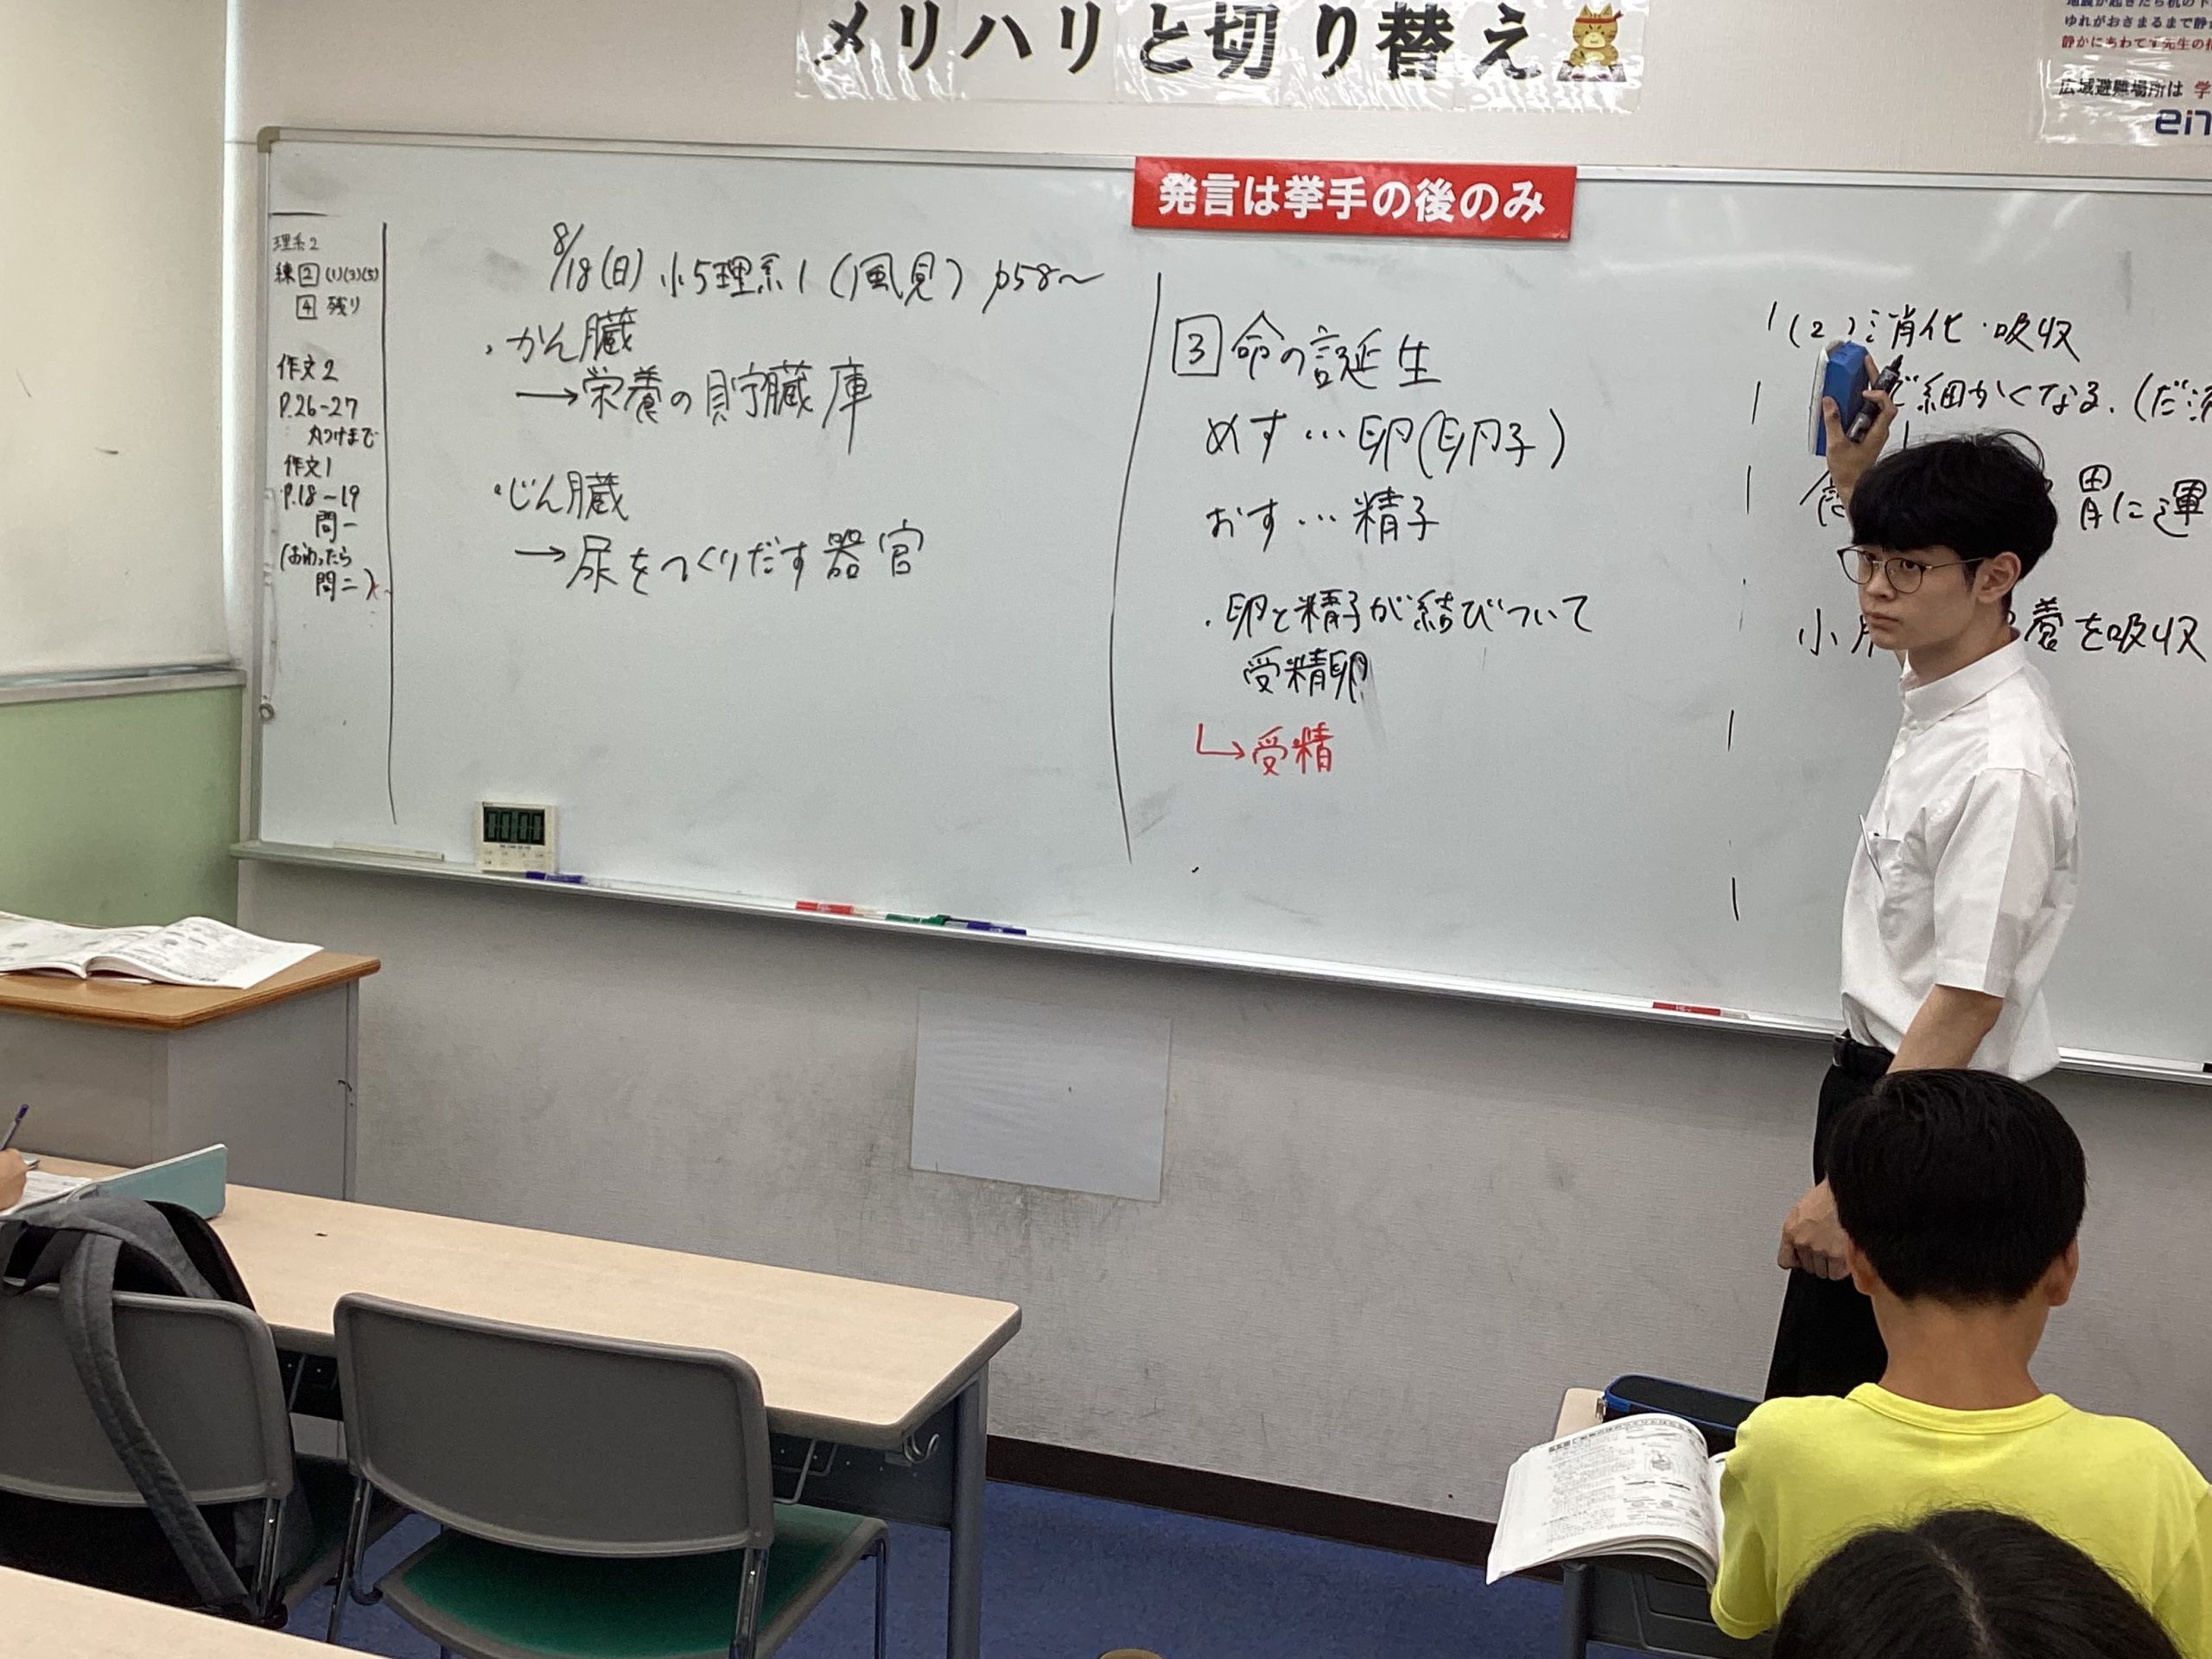 メリハリと切り替え
ゆれがおさまるまで静か
静かにあわてず先生の指
広域避難場所は 学
ein
発言は挙手の後のみ
理系2
練2 (1)(3)(5)
4 残り
作文2
P.26-27
丸つけまで
作文1
P.18-19
問一
(おわったら
問二)
8/18(日) 小5理系1 (風見) p58〜
・かん臓
→栄養の貯臓庫
・じん臓
→尿をつくりだす器官
3 命の誕生
めす…卵(卵子)
おす…精子
・卵と精子が結びついて
受精卵
↳受精
(2)消化・吸収
で細かくなる.(だ液
胃に運
小 養を吸収
00:00